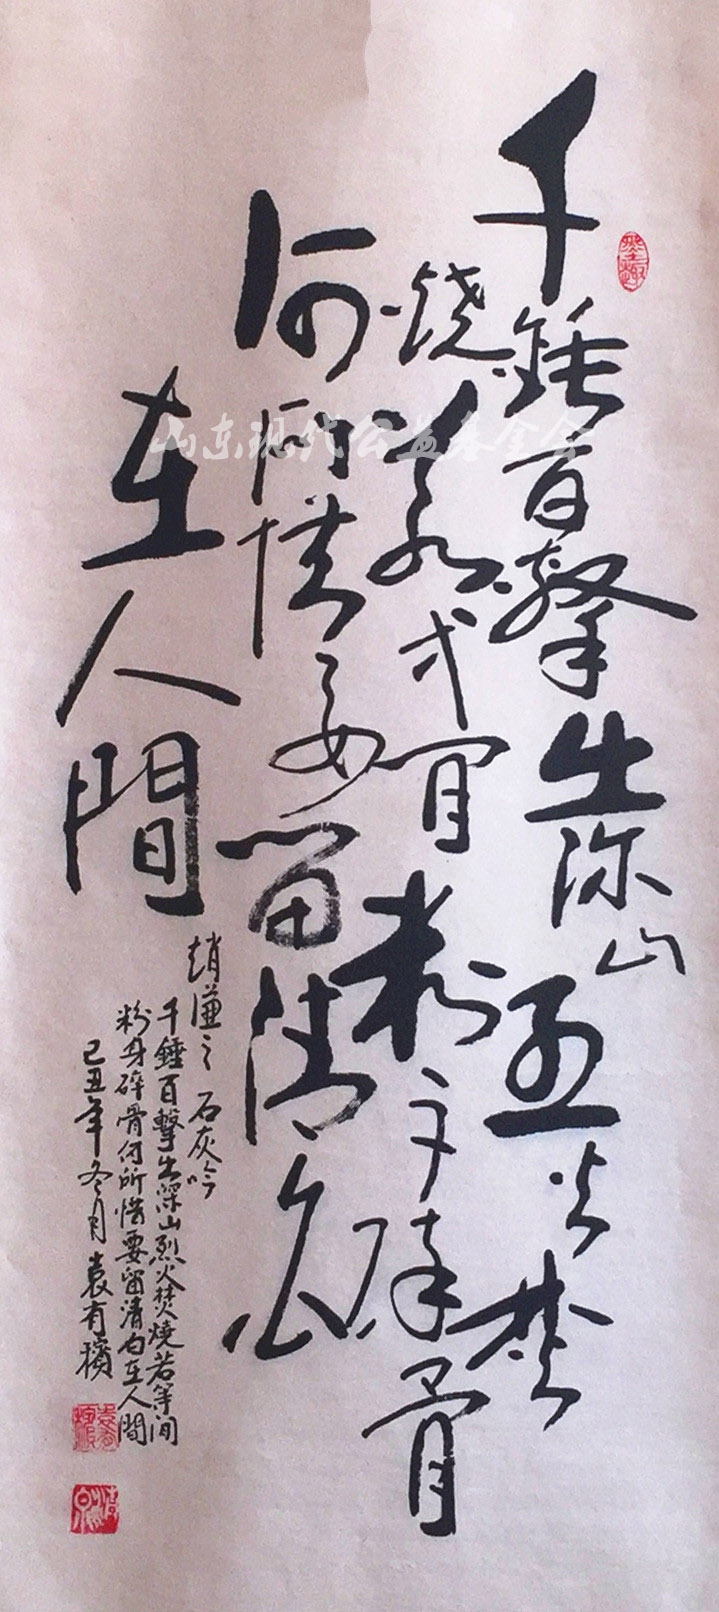 千錘百擊出深山烈火焚
燒若等閒粉身碎骨
何所惜要留清白
在人間
趙謙之 石灰吟
千錘百擊出深山烈火焚燒若等间
粉身碎骨何所惜要留清白在人間
己丑年冬月袁有
山东现代公益基金会